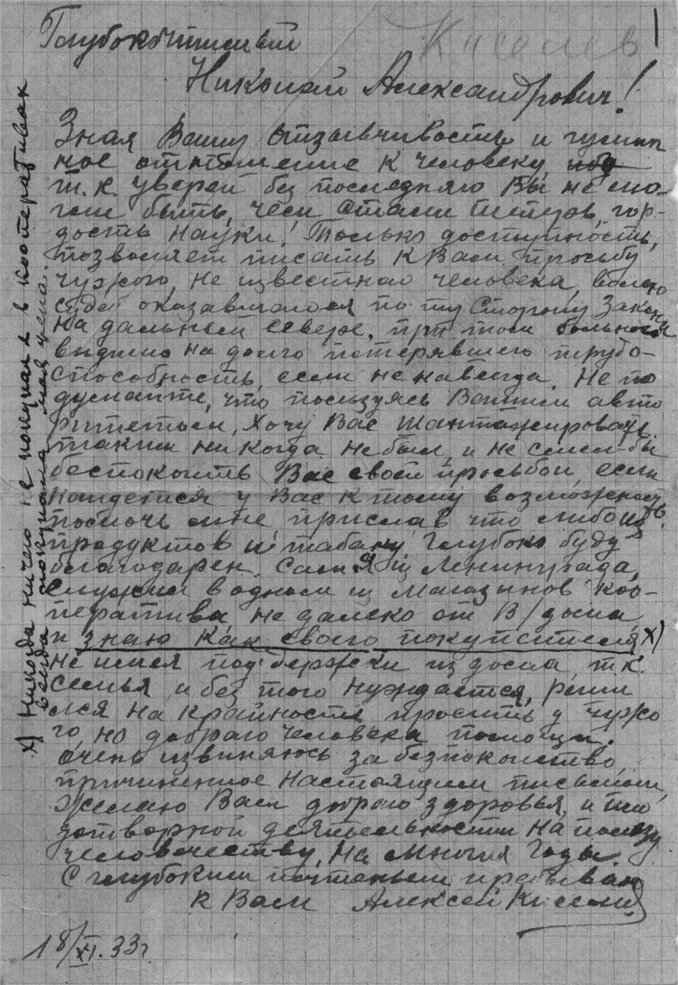 Киселев
1
Глубокочтимый
Николай Александрович!
Зная Вашу отзывчивость и гуман
ное отношение к человеку,
т.к. уверен без последняго Вы не мо
гли быть, чем стали теперь, гор-
дость науки! Только доступность,
позволяет писать к Вам просьбу
чужого, не известнаго человека, волею
судеб оказавшегося по ту сторону закона
на дальнем севере, при том больного
видимо на долго потерявшего трудо-
способность, если не навсегда. Не по
думайте, что пользуясь Вашим авто
ритетом, хочу Вас шантажировать.
таким никогда не был, и не смел бы
беспокоить Вас своей просьбой, если
найдется у Вас к тому возможность
помочь мне прислав что либо из
продуктов и табаку глубоко буду
благодарен. Сам я из Ленинграда,
служил в одном из магазинов коо-
ператива не далеко от В/дома
и знаю как своего покупателя x)
не имея поддержки из дома т.к.
семья и без того нуждается, реши
лся на крайность просить у чужо
го, но добраго человека помощи.
очень извиняюсь за беспокойство,
причиненное настоящим письмом,
Желаю Вам добраго здоровья, и пло
дотворной деятельности на пользу
человечеству, на многия годы.
С глубоким почтеньем пребываю
к Вам Алексей
18/XI.33г
x) Никогда ничего не покупал я в кооперативах
всегда покупала моя жена.